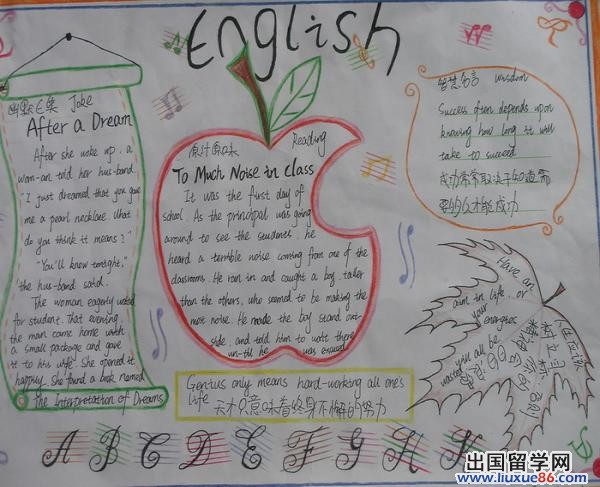 English
幽默E笑 Joke
After a Dream
After she woke up, a
wom-an told her hus-band.
"I just dreamed that you gave
me a pearl necklace. What
do you think it means?"
"You'll know tonight,"
the hus-band said.
The woman eagerly waited
for student. That evening,
the man came home with
a small package and gave
it to his wife. She opened it
happily. She found a book named
The Interpretation of Dreams
原汁原味 Reading
To Much Noise in Class
It was the first day of
school. As the principal was going
around to see the students, he
heard a terrible noise coming from one of the
classrooms. He ran in and caught a boy, taller
than the others, who seemed to be making the
most noise. He made the boy stand out-
side, and told him to wait there
un-til he was excused
智慧名言 wisdom
Success often depends upon
knowing how long it will
take to succeed
成功常常取决于知道需
要多久才能成功
Have an
aim in life, or
your energies
will all be
wasted
Genius only means hard-working all one's
life
天才只意味着终身不懈的努力
A B C D E F G H
出国留学网
www.liuxue86.com